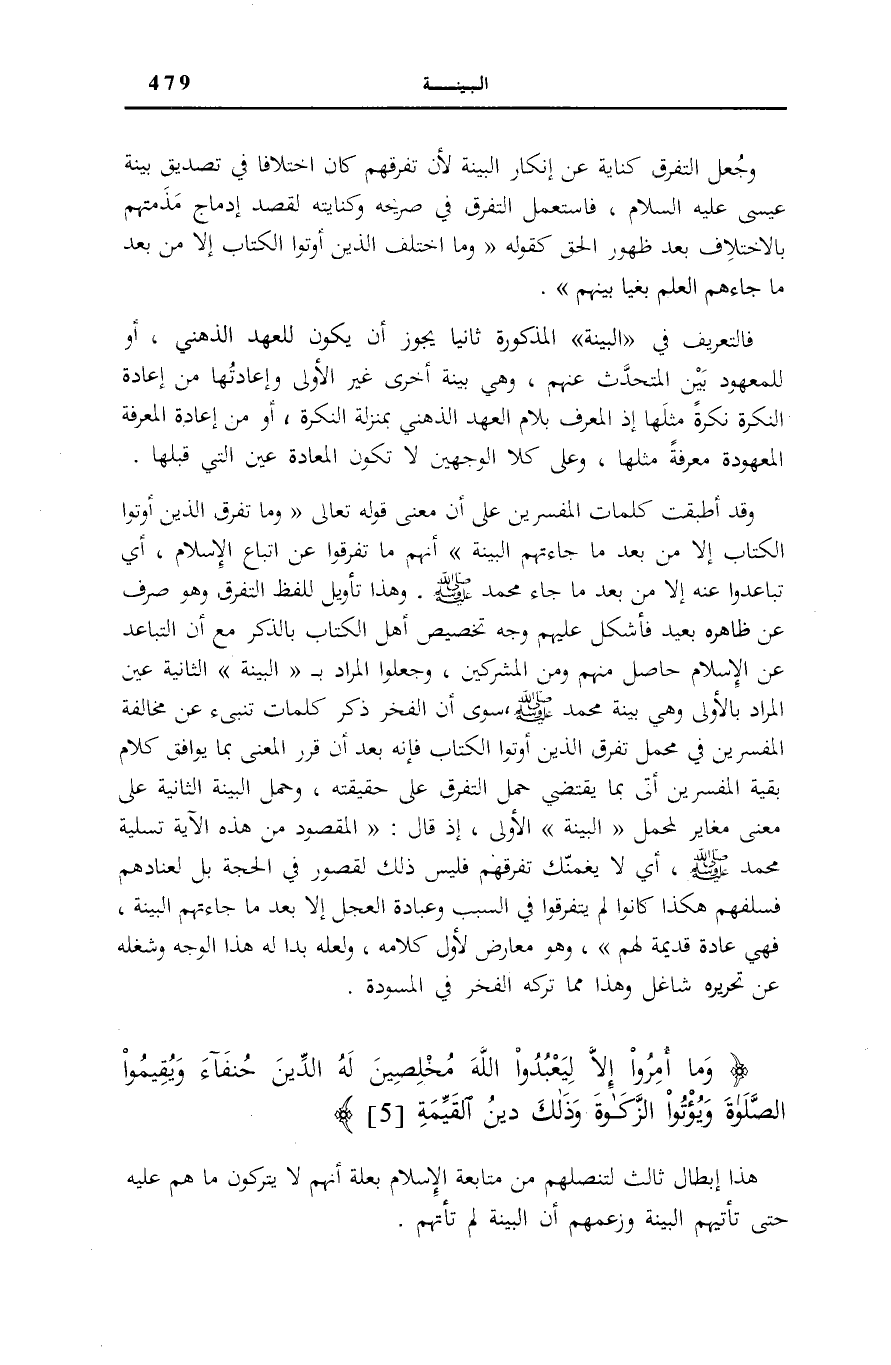 البينـــة 479
وجُعل التفرق كناية عن إنكار البينة لأن تفرقهم كان اختلافا في تصديق بينة
عيسى عليه السلام ، فاستعمل التفرق في صريحه وكنايته لقصد إدماج مَذَمتهم
بالاختلاِف بعد ظهور الحق كقوله « وما اختلف الذين أوتوا الكتاب إلا من بعد
ما جاءهم العلم بغيا بينهم » .
فالتعريف في «البينة» المذكورة ثانيا يجوز أن يكون للعهد الذهني ، أو
للمعهود بَيْن المتحدَّث عنهم ، وهي بينة أخرى غير الأولى وإعادتُها من إعادة
النكرة نكرةً مثلَها إذ المعرف بلام العهد الذهني بمنزلة النكرة ، أو من إعادة المعرفة
المعهودة معرفةً مثلها ، وعلى كلا الوجهين لا تكون المعادة عين التي قبلها .
وقد أطبقت كلمات المفسرين على أن معنى قوله تعالى « وما تفرق الذين أوتوا
الكتاب إلا من بعد ما جاءتهم البينة » أنهم ما تفرقوا عن اتباع الإسلام ، أي
تباعدوا عنه إلا من بعد ما جاء محمد ﷺ . وهذا تأويل للفظ التفرق وهو صرف
عن ظاهره بعيد فأشكل عليهم وجه تخصيص أهل الكتاب بالذكر مع أن التباعد
عن الإسلام حاصل منهم ومن المشركين ، وجعلوا المراد بـ « البينة » الثانية عين
المراد بالأولى وهي بينة محمد ﷺ ،سوى أن الفخر ذكر كلمات تنبىء عن مخالفة
المفسرين في محمل تفرق الذين أوتوا الكتاب فإنه بعد أن قرر المعنى بما يوافق كلام
بقية المفسرين أتى بما يقتضي حمل التفرق على حقيقته ، وحمل البينة الثانية على
معنى مغاير لمحمل « البينة » الأولى ، إذ قال : « المقصود من هذه الآية تسلية
محمد ﷺ ، أي لا يغمنّك تفرقهم فليس ذلك لقصور في الحجة بل لعنادهم
فسلفهم هكذا كانوا لم يتفرقوا في السبب وعبادة العجل إلا بعد ما جاءتهم البينة ،
فهي عادة قديمة لهم » ، وهو معارض لأول كلامه ، ولعله بدا له هذا الوجه وشغله
عن تحريره شاغل وهذا مما تركه الفخر في المسودة .
﴿ وَمَا أُمِرُواْ إِلاَّ لِيَعْبُدُواْ اللَّهَ مُخْلِصِينَ لَهُ الدِّينَ حُنفَآءَ وَيُقِيمُواْ
الصَّلَوٰةَ وَيُؤْتُواْ الزَّكَـٰوةَ وَذَٰلكَ دينُ ٱلقَيِّمَةِ [5] ﴾
هذا إبطال ثالث لتنصلهم من متابعة الإسلام بعلة أنهم لا يتركون ما هم عليه
حتى تأتيهم البينة وزعمهم أن البينة لم تأتهم .